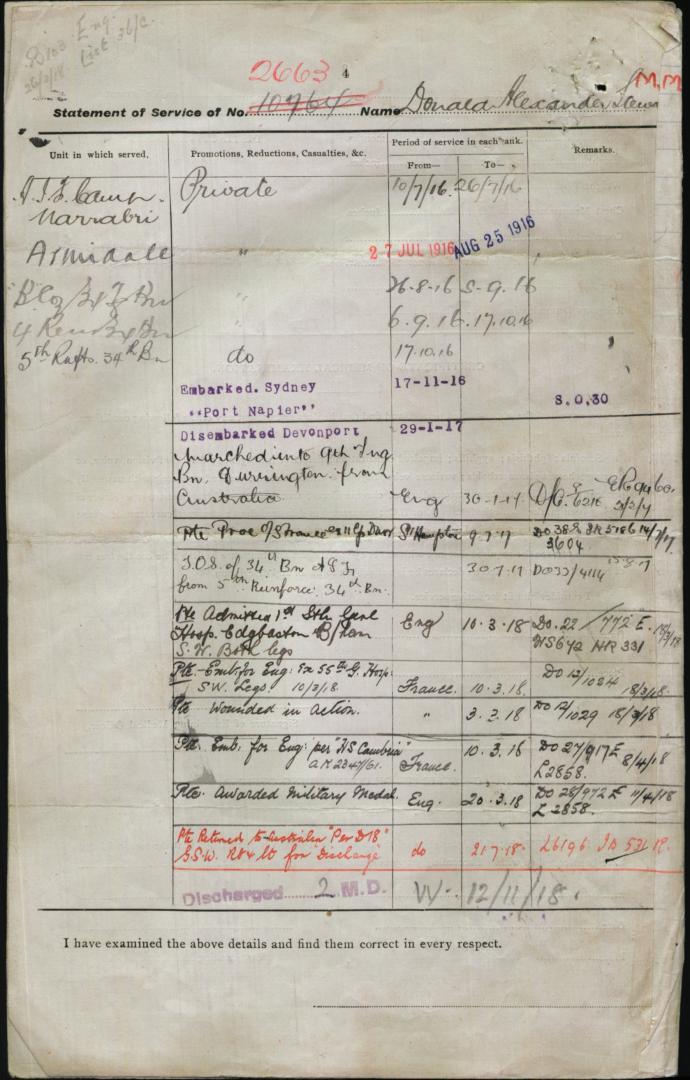 Eng.
List 36/C
26/3/18
2663 4
M.M
Statement of Service of No. 10764 Name Donald Alexander
Unit in which served. Promotions, Reductions, Casualties, &c. Period of service in each rank. Remarks.
From— To—
A.I.F. Camp. Private 10/7/16 26/7/16
Narrabri
Armidale " 27 JUL 1916 AUG 25 1916
" 26-8-16 5-9-16
" 6.9.16. 17.10.16
5th Rafts. 34th Bn do 17.10.16
Embarked. Sydney 17-11-16
"Port Napier" S.O.30
Disembarked Devonport 29-1-17
Marched into 9th Tng
Bn. Durrington from
Australia Eng 30.1.17
Pte Proc O/S France S'Hampton 9.7.17 3604
T.O.S. of 34th Bn A.I.F. 30.7.17 DO33/4114
from 5th Reinforce 34th Bn.
Pte Admitted 1st Sthn Genl Eng 10.3.18 DO.22/772 E.
Hosp. Edgbaston B/ham WS642 HR 331
S.W. Both legs
Pte. Emb. for Eng: Ex 55th G. Hosp: DO 12/1034
S.W. Legs. 10/3/18. France. 10.3.18. 18/3/18.
Pte. Wounded in Action. " 3.3.18 DO 12/1029 18/3/18
Pte. Emb. for Eng: per "HS Cambria" 10.3.18 DO 27/917 E
France. L2858. 8/4/18
Pte. Awarded Military Medal. Eng. 20.3.18 DO 28/972 E 11/4/18
L 2858.
Pte Returned to Australia "Per D18"
G.S.W. for "Discharge" do 21.7.18. L6196
Discharged 2 M.D. 12/11/18.
I have examined the above details and find them correct in every respect.